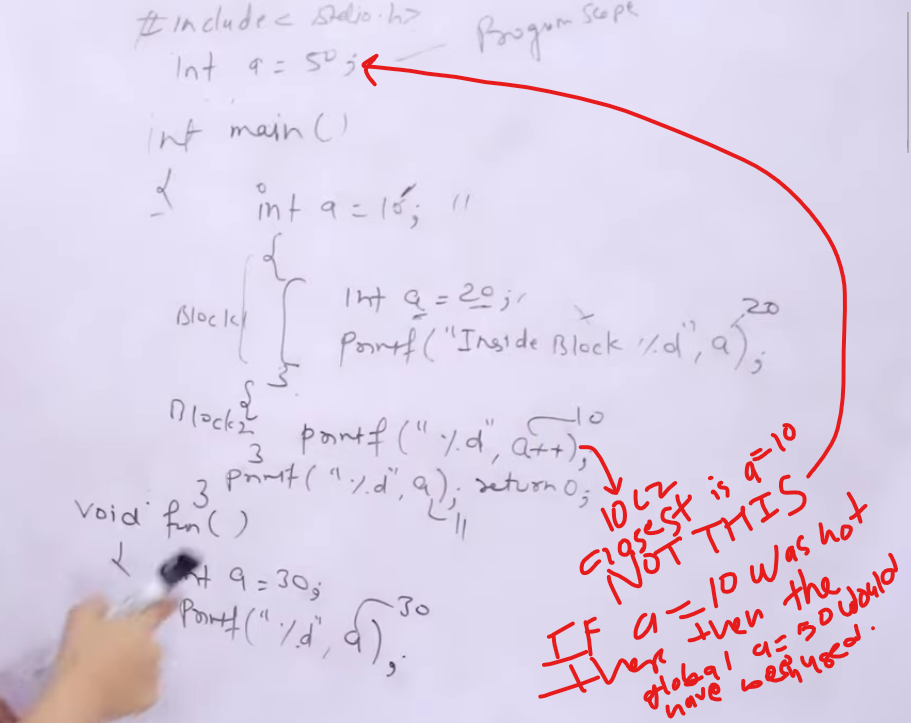 #include< stdio.h>
Progum scope
int a = 50;
int main()
{ int a = 10; "
{
Block1 { int a = 20;
printf("Inside Block %d", a); 20
}
Block2 { printf("%d", a++); 10
}
printf("%d", a); return 0;
11
}
void fun()
{ int a = 30;
printf("%d", a); 30
10 cz
closest is a=10
NOT THIS
IF a=10 was not
there then the
global a=50 would
have been used.